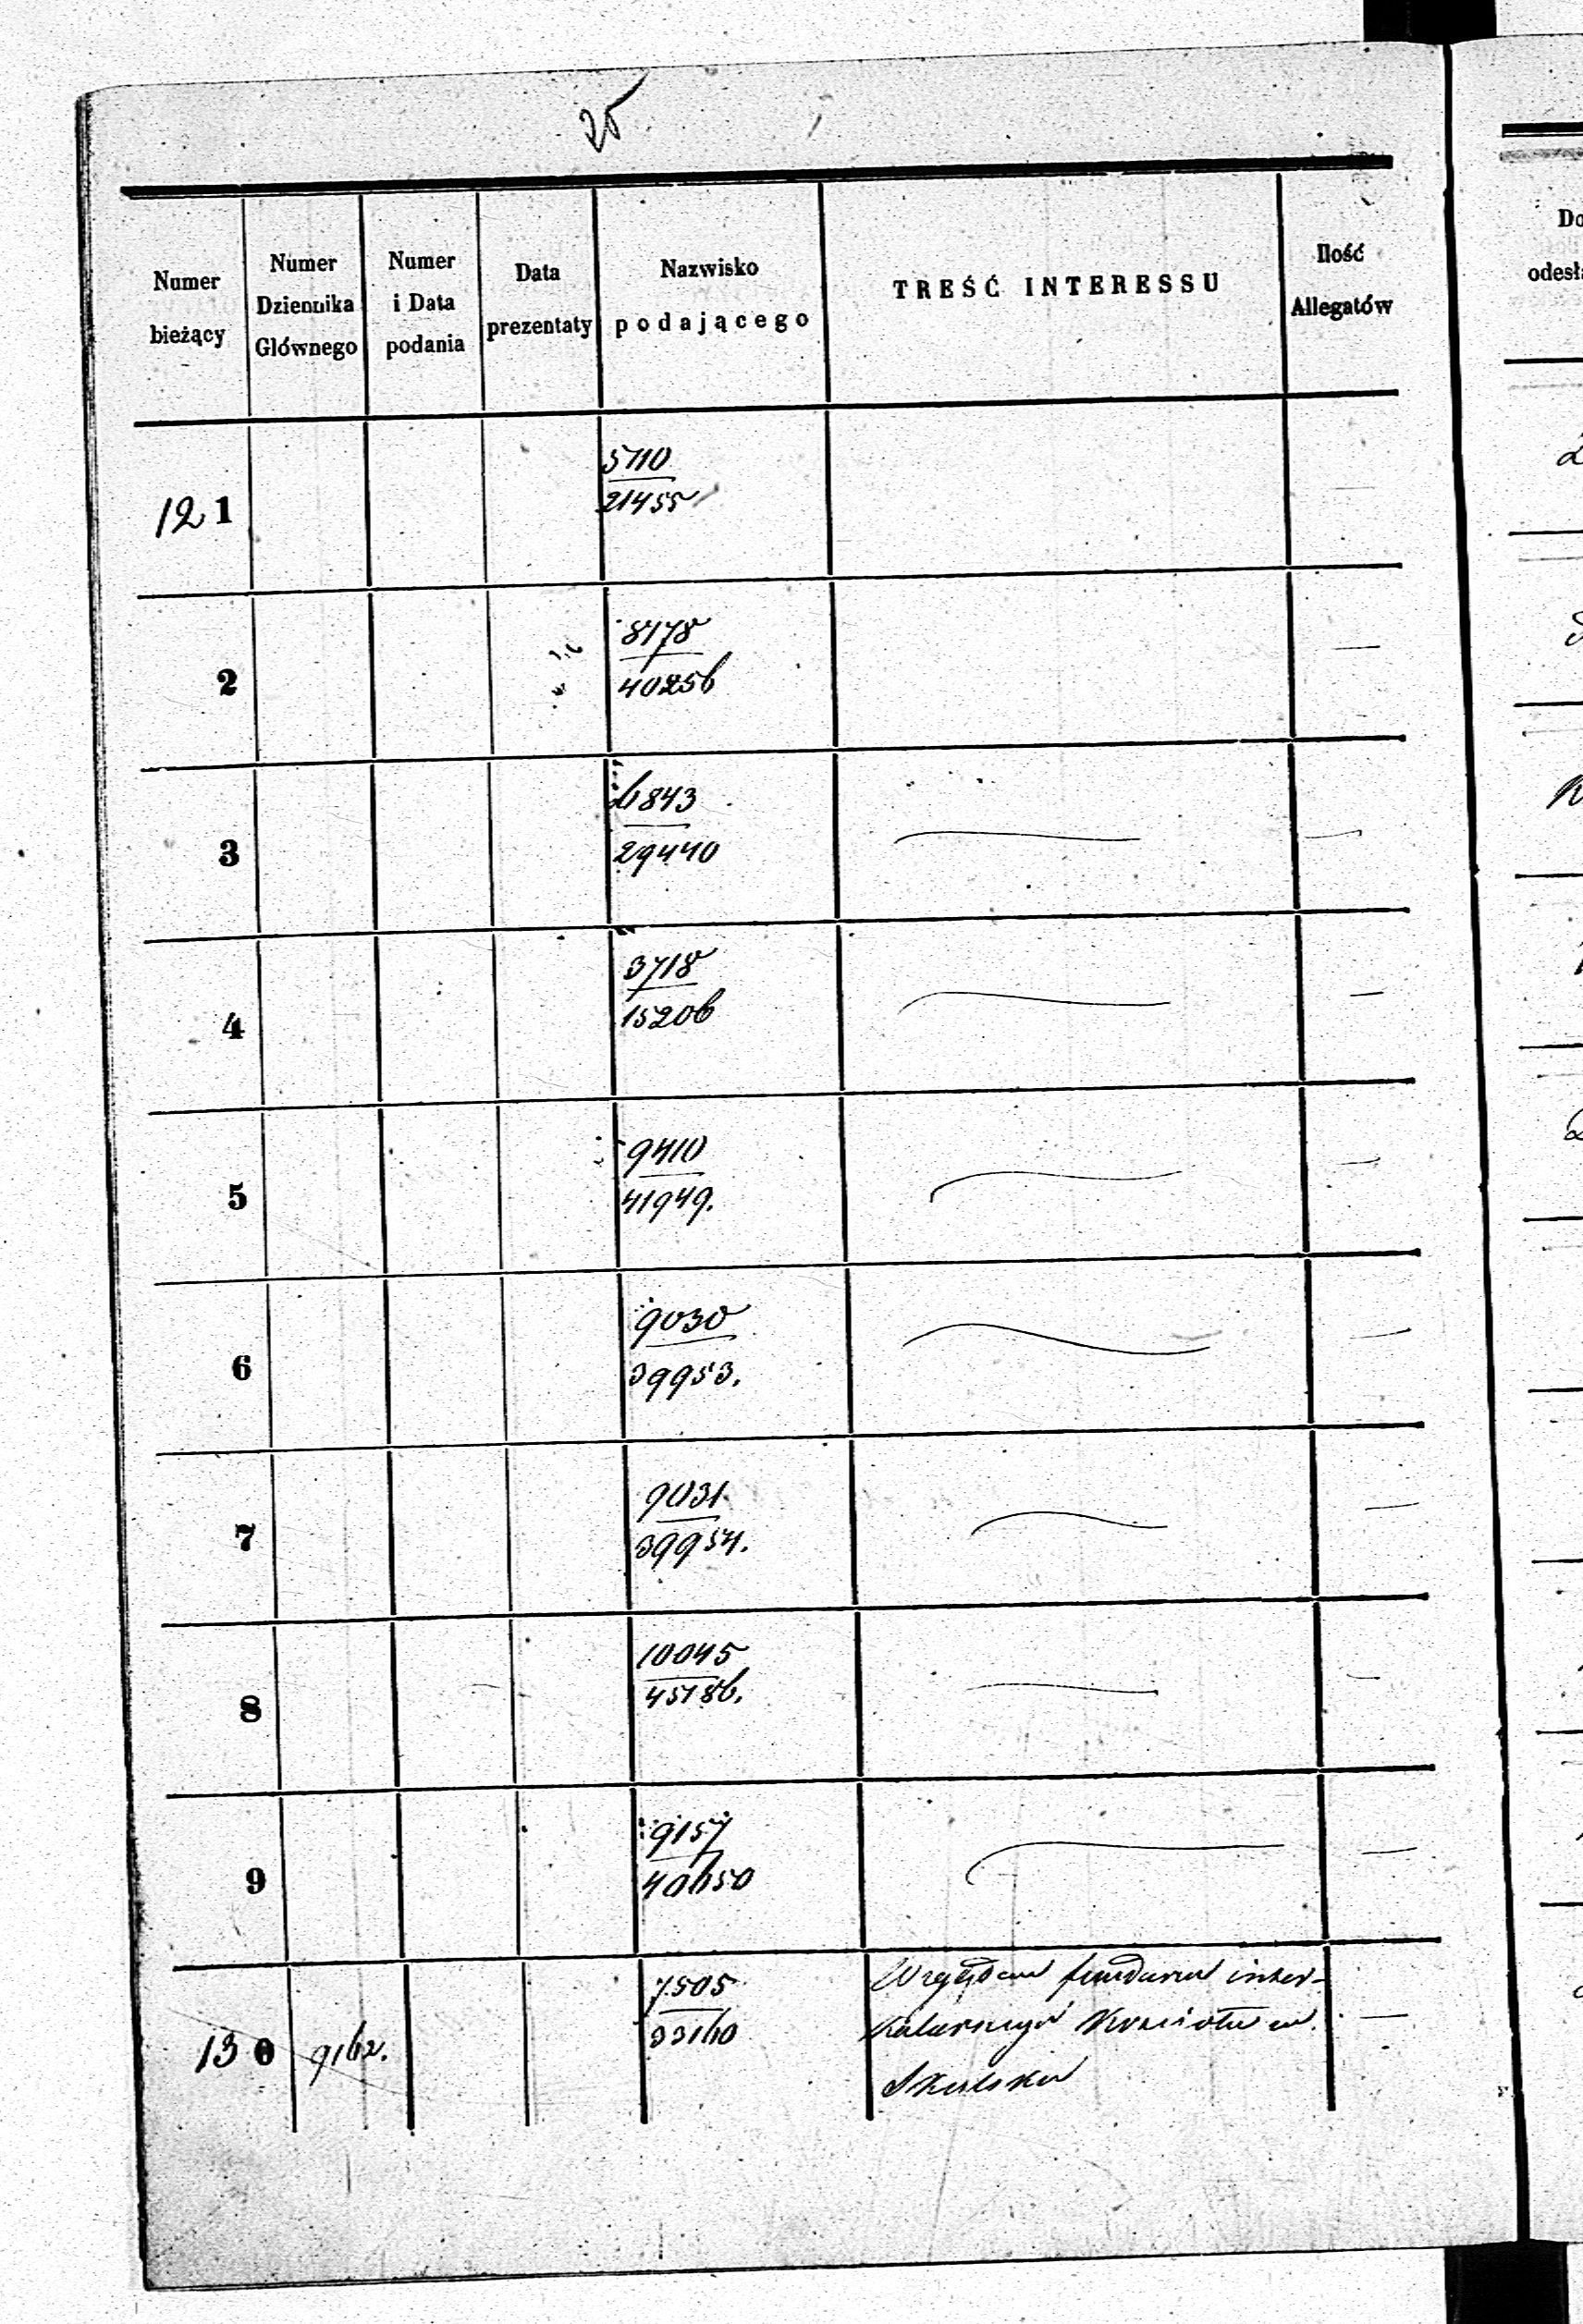 25
Numer bieżący
Numer Dziennika Głównego
Numer i Data podania
Data prezentaty
Nazwisko podającego
TREŚĆ INTERESSU
Ilość Allegatów
Do
odesł
121
5710
21455
2
8178
40256
3
6843
29440
4
3718
15206
5
9410
41949.
6
9030
39953.
7
9031
39954.
8
10045
45186.
9
9157
40650
130
9162.
7505
33160
Względem funduszu inter-
kalarnego Kościoła w
Skulsku